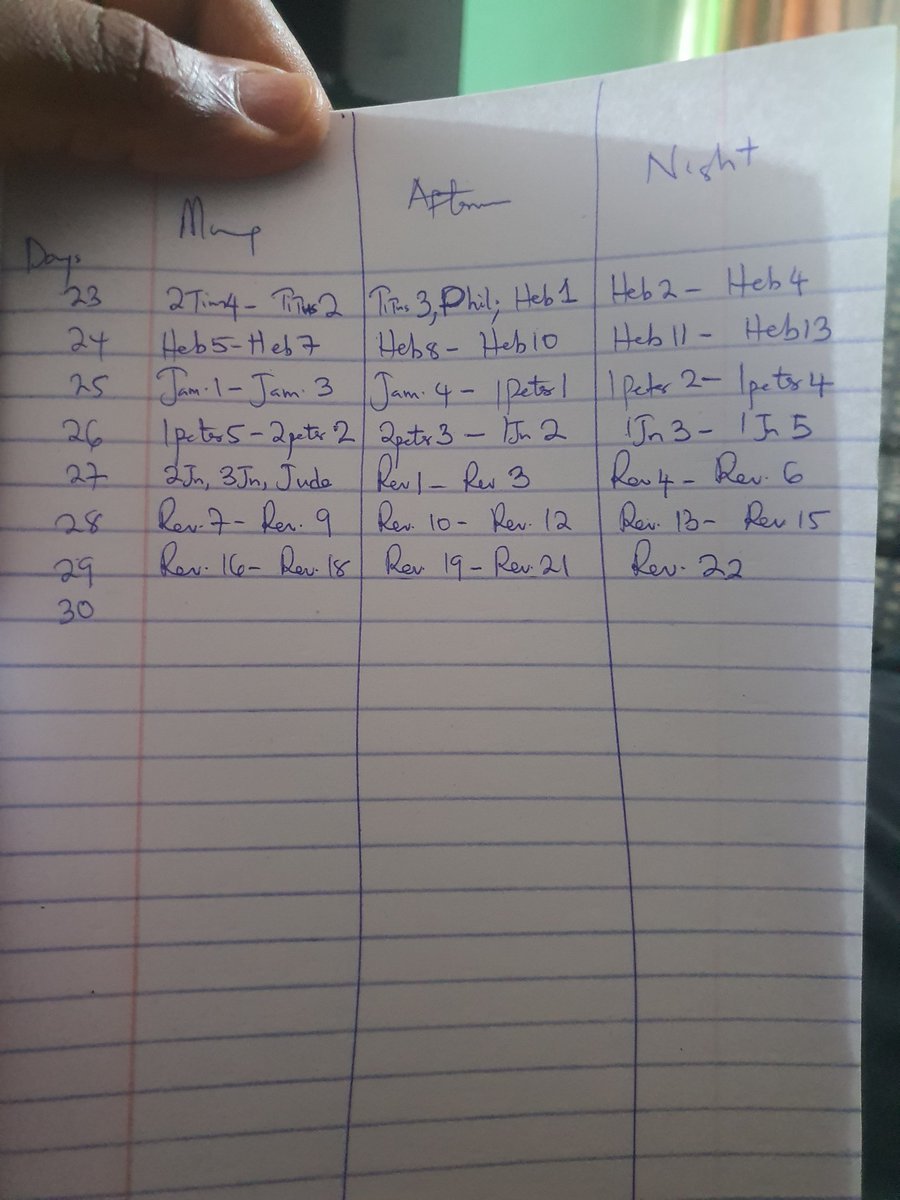 Days Mng Aftrn Night
23 2Tim4 - Titus 2 Titus 3, Phil; Heb 1 Heb 2 - Heb 4
24 Heb 5 - Heb 7 Heb 8 - Heb 10 Heb 11 - Heb 13
25 Jam. 1 - Jam. 3 Jam. 4 - 1Peter 1 1Peter 2 - 1peter 4
26 1peter 5 - 2peter 2 2peter 3 - 1Jn 2 1Jn 3 - 1Jn 5
27 2Jn, 3Jn, Jude Rev 1 - Rev. 3 Rev 4 - Rev. 6
28 Rev. 7 - Rev. 9 Rev. 10 - Rev. 12 Rev. 13 - Rev 15
29 Rev. 16 - Rev. 18 Rev. 19 - Rev. 21 Rev. 22
30